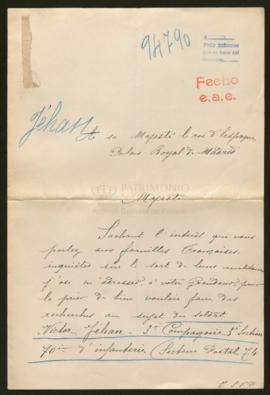 94790
Fecho
e.a.e.
Jéhan
A sa Majesté le roi d'Espagne
Palais Royal de Madrid
PATRIMONIO
Majesté
Sachant l'intérêt que vous
portez aux familles Françaises,
inquiètes sur le sort de leurs
j'ose m'adresser à votre pour
la prier de bien vouloir faire des
recherches au sujet du soldat
Victor Jéhan - 3e Compagnie 3e Section
70me d'infanterie (Secteur Postal 74